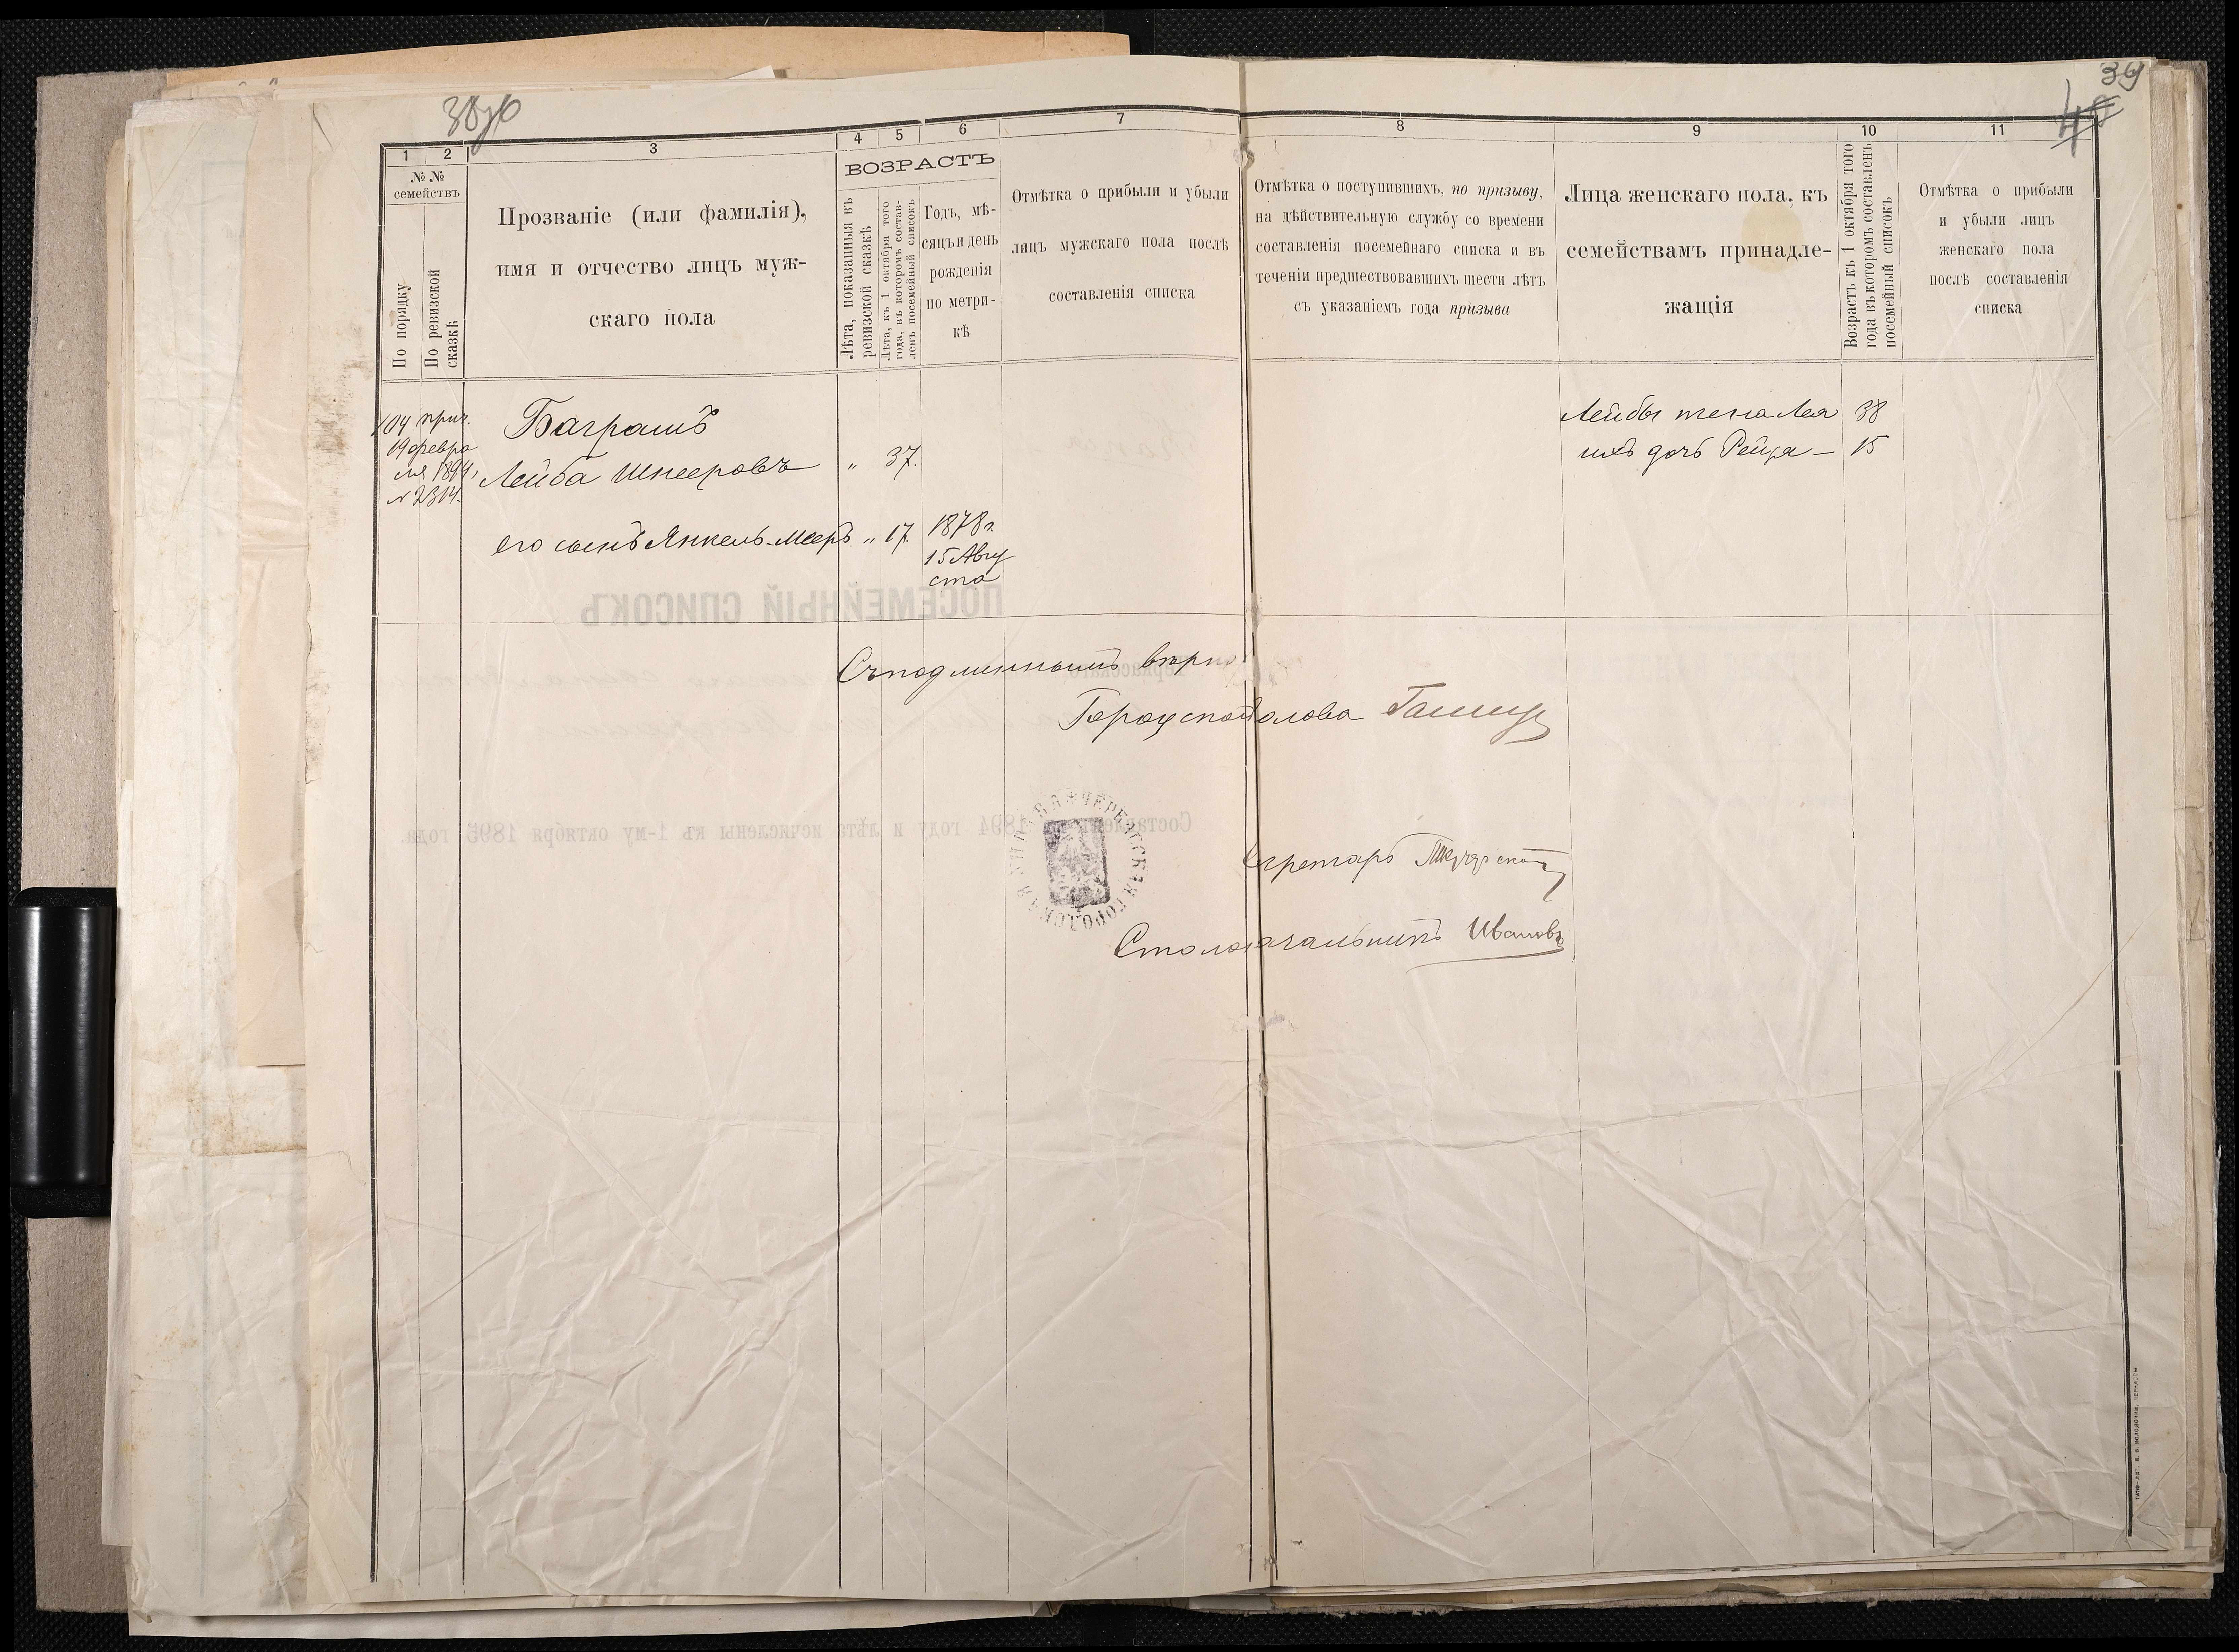 39
1 2 3 4 5 6 7 8 9 10 11
№№
семействъ
По порядку
По ревизской
сказкѣ
Прозваніе (или фамилія),
имя и отчество лицъ муж-
скаго пола
ВОЗРАСТЪ
Лѣта, показанныя въ
ревизской сказкѣ
Лѣта, къ 1 октября того
года, въ которомъ состав-
ленъ посемейный списокъ
Годъ, мѣ-
сяцъ и день
рожденія
по метри-
кѣ
Отмѣтка о прибыли и убыли
лицъ мужскаго пола послѣ
составленія списка
Отмѣтка о поступившихъ, по призыву,
на дѣйствительную службу со времени
составленія посемейнаго списка и въ
теченіи предшествовавшихъ шести лѣтъ
съ указаніемъ года призыва
Лица женскаго пола, къ
семействамъ принадле-
жащія
Возрастъ къ 1 октября того
года въ которомъ составленъ
посемейный списокъ
Отмѣтка о прибыли
и убыли лицъ
женскаго пола
послѣ составленія
списка
104 прич.
19 февра
ля 1894 г
№ 2314.
Баграшъ
Лейба Шнееровъ " 37.
его сынъ Янкель-Мееръ " 17. 1878 г.
15 Авгу
ста
Лейбы жена Лея 38
ихъ дочь Рейза — 15
ПОСЕМЕЙНЫЙ СПИСОКЪ
Съ подлиннымъ вѣрно:
Городской Голова
Составленъ въ 1894 году и лѣта исчислены къ 1-му октября 1895 года.
ЧЕРКАССКАЯ ГОРОДСКАЯ УПРАВА
Секретарь
Столоначальникъ Ивановъ